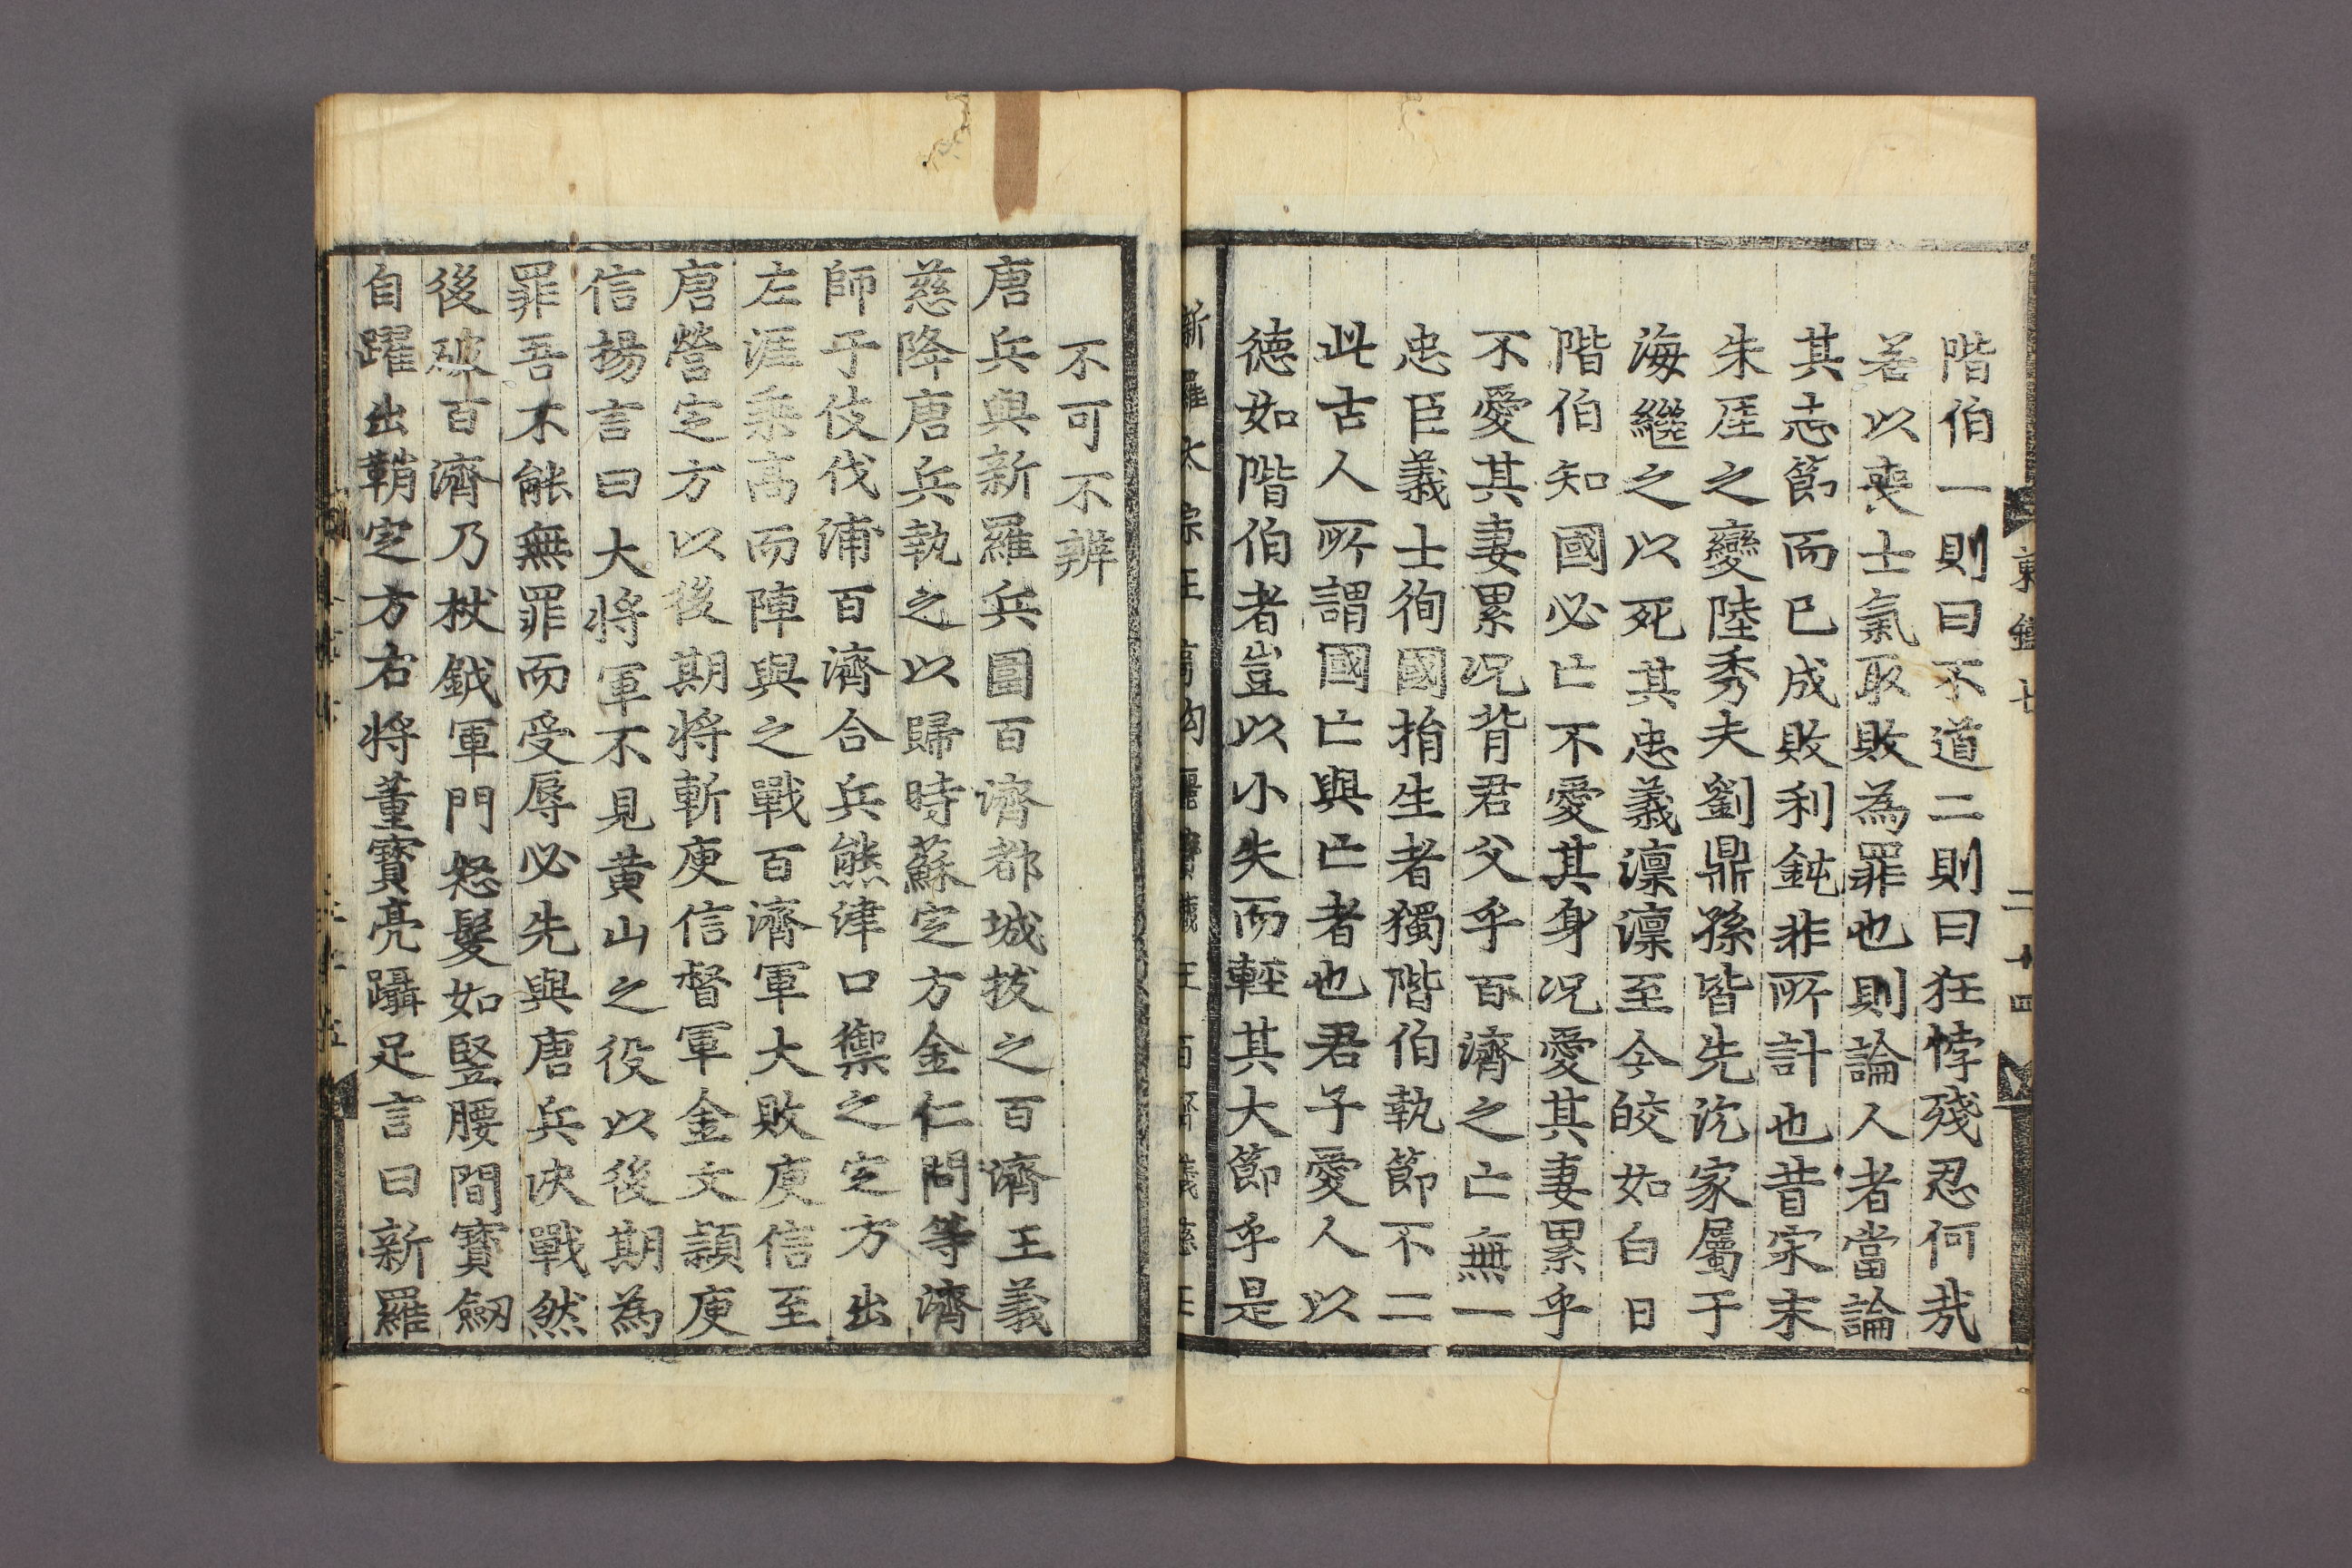 階伯一則曰不道二則曰狂悖殘忍何㢤
若以喪士氣取敗為罪也則論人者當論
其志節而已成敗利鈍非所計也昔宋末
朱厓之變陸秀夫劉鼎孫皆先沉家屬于
海繼之以死其忠義凜凜至今皎如白日
階伯知國必亡不愛其身况愛其妻累乎
不愛其妻累况背君父乎百濟之亡無一
忠臣義士徇國捐生者獨階伯執節不二
此古人所謂國亡與亡者也君子愛人以
德如階伯者豈以小失而輕其大節乎是
新羅太宗王 高句麗寶藏王 百濟義慈王
不可不辨
唐兵與新羅兵圍百濟都城拔之百濟王義
慈降唐兵執之以歸時蘇定方金仁問等濟
師于伎伐浦百濟合兵熊津口禦之定方出
左涯乘高而陣與之戰百濟軍大敗庾信至
唐營定方以後期將斬庾信督軍金文穎庾
信揚言曰大將軍不見黄山之役以後期為
罪吾不能無罪而受辱必先與唐兵决戰然
後破百濟乃杖鉞軍門怒髮如竪腰間寶劒
自躍出鞘定方右將董寶亮躡足言曰新羅